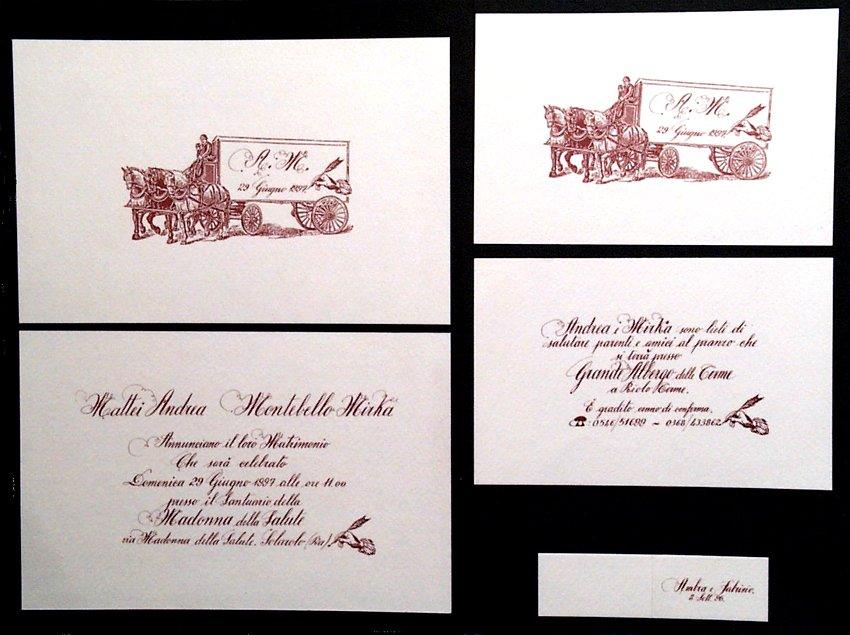 A. M.
29 Giugno 1997
Mattei Andrea Montebello Mirka
Annunciano il loro Matrimonio
Che sarà celebrato
Domenica 29 Giugno 1997 alle ore 11.00
presso il Santuario della
Madonna della Salute
via Madonna della Salute. Solarolo (Ra)
A. M.
29 Giugno 1997
Andrea e Mirka sono lieti di
salutare parenti e amici al pranzo che
si terrà presso
Grande Albergo delle Terme
a Riolo Terme.
È gradito cenno di conferma.
☎: 0546/51699 - 0368/433862
Ambra e Fabrizio.
Sett. 96.